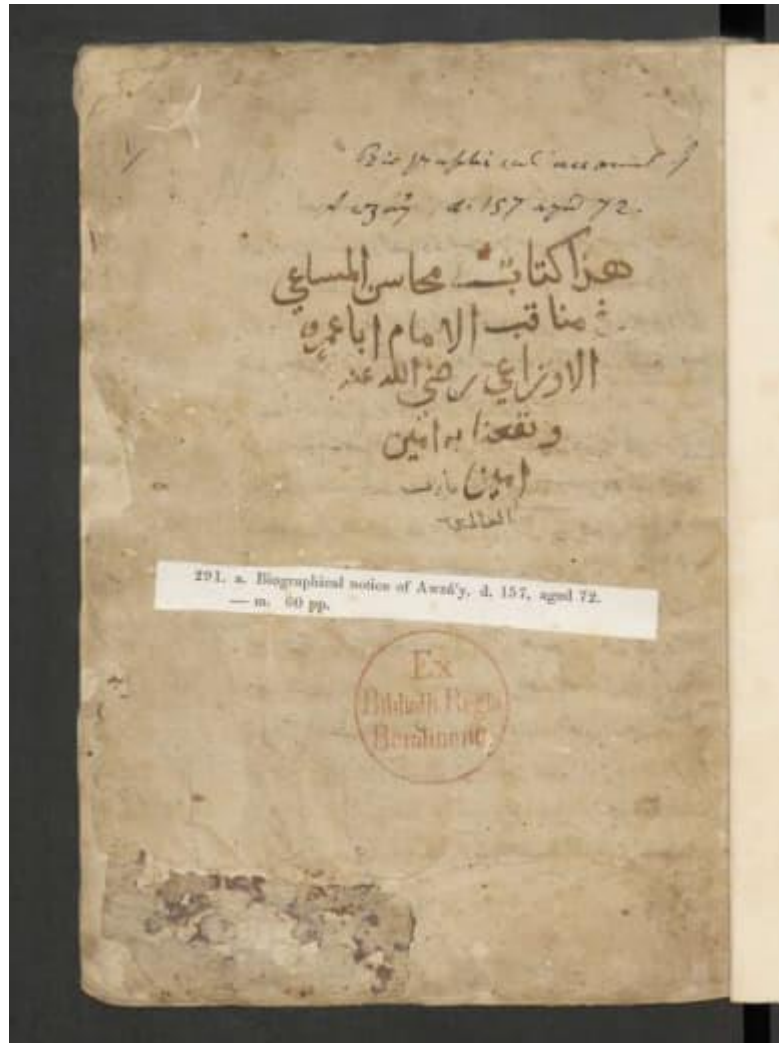 Biographical account of
Awzá'y d. 157 aged 72.
هذا كتاب محاسن المساعي
في مناقب الامام ابا عمرو
الاوزاعي رضي الله عنه
ونفعنا به امين
امين يا رب
العالمين
291. a. Biographical notice of Awzá'y, d. 157, aged 72.
— m. 60 pp.
Ex
Biblioth. Regia
Berolinensi.